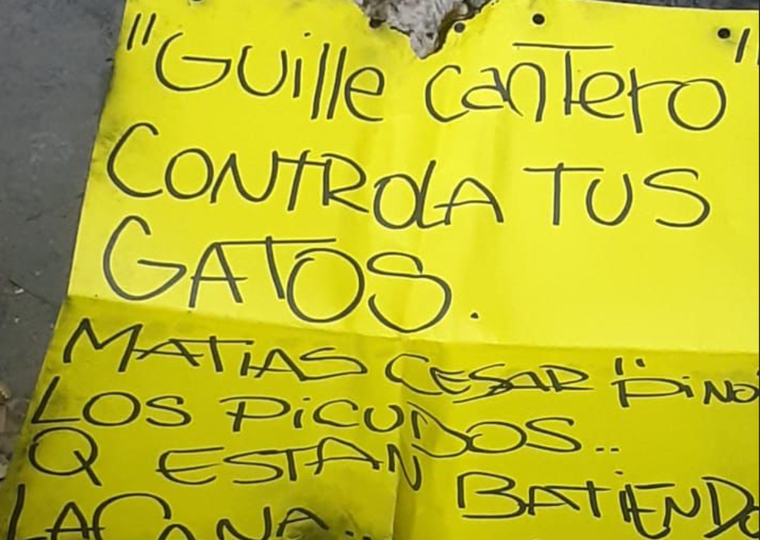 "GUille Cantero"
CONTROLA TUS
GATOS.
MATIAS CESAR "PiNO
LOS PiCUDOS..
Q ESTAN BATIENDO
LA CANA..